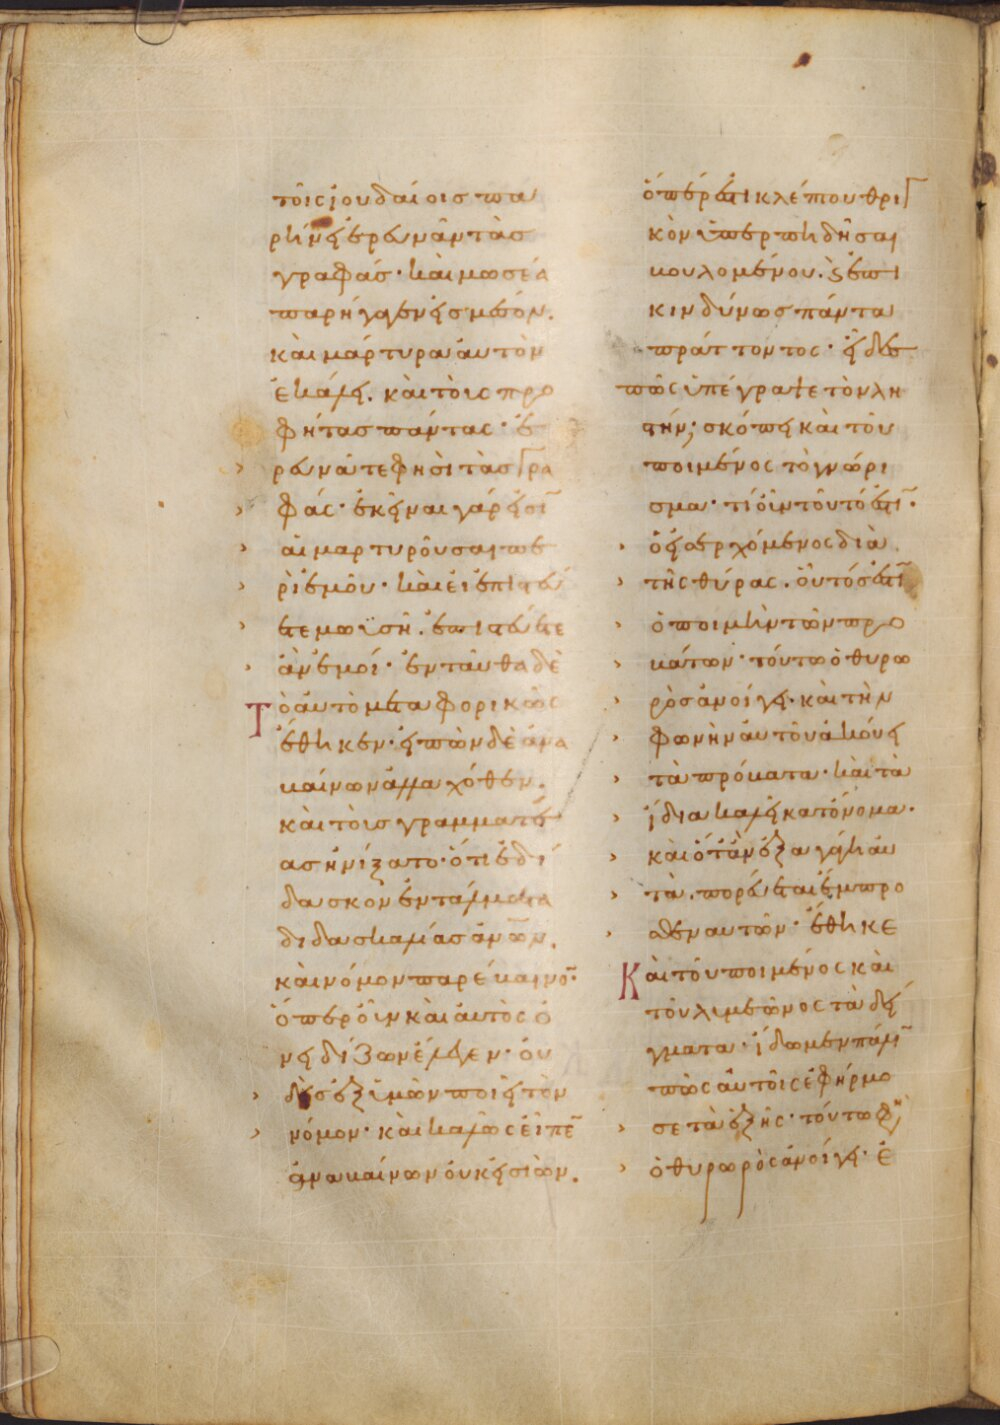 τοῖς ἰουδαίοις πα
ρήνει ἐρευνᾶν τὰσ
γραφάσ· καὶ μωσέα
παρήγαγεν εἰσ μέσον.
καὶ μάρτυρα αὐτὸν
ἐκάλει. καὶ τοὺς προ
φήτασ πάντασ· ἐ
ρευνᾶτε φησὶ τὰσ γρα
φάς· ἐκεῖναι γάρ εἰσῑ
αἱ μαρτυροῦσαι πε
ρὶ ἐμοῦ· καὶ εἰ ἐπιστεύ
ετε μωϋσῆ. ἐπιστεύετε
ἂν ἐμοί· ἐνταῦθα δὲ
τὸ αὐτὸ μεταφορικῶς
ἔθηκεν· εἰπὼν δὲ ἀνα
βαίνων ἀλλαχόθεν.
καὶ τοὺσ γραμματέ
ασ ἠνίξατο· ὅτι ἐδί
δασκον ἐντάλματα
διδασκαλίασ ἀν̅ω̅ν.
καὶ νόμον παρέβαινο̅·
ὅπερ οὖν καὶ αὐτὸς ὀ
νειδίζων ἔλεγεν· οὐ
δεὶσ ἐξ ὑμῶν ποιεῖ τὸν
νόμον· καὶ καλῶς εἶπε̅
ἀναβαίνων οὐκ εἰσιών.
ὅπερ ἐστὶ κλέπτου θριγ
κὸν ὑπερπηδῆσαι
βουλομένου. ϗ ἐπι
κινδύνωσ πάντα
πράττοντος· εἶδες
πῶς ὑπέγραψε τὸν λη
στήν; σκόπει καὶ τοῦ
ποιμένος τὸ γνώρι
σμα· τί οὖν τοῦτό ἐστῑ·
ὁ εἰσερχόμενος διὰ
τῆς θύρας. οὗτός ἐστῑ
ὁ ποιμὴν τῶν προ
βάτων· τούτω ὁ θυρω
ρὸσ ἀνοίγει· καὶ τὴν
φωνὴν αὐτοῦ ἀκούει
τὰ πρόβατα· καὶ τὰ
ἴδια καλεῖ κατόνομα·
καὶ ὅταν ἐξαγάγη αὐ
τὰ. πορεύεται ἔμπρο
σθεν αυτῶν· ἔθηκε
καὶ τοῦ ποιμένος καὶ
τοῦ λυμεῶνος τὰ δεί
γματα· ἴδωμεν πάλῑ
πῶς αὐτοῖς ἐφήρμο
σε τὰ ἑξῆς· τούτω φη
ὁ θυρωρὸς ἀνοίγει· ἔ